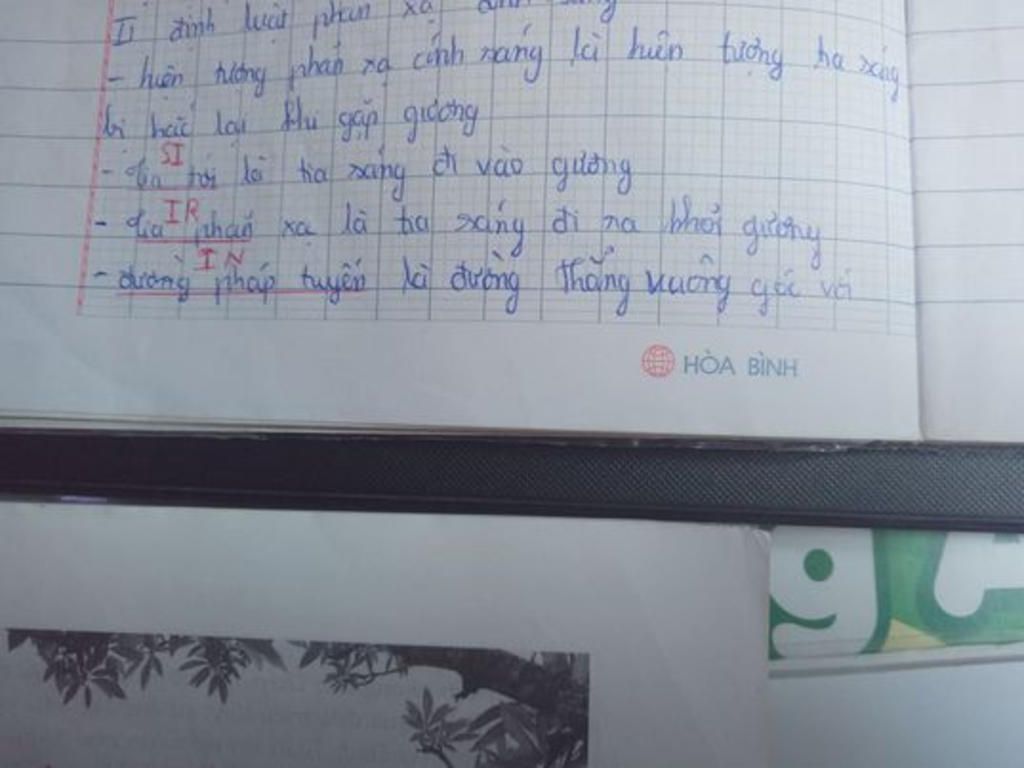 II định luật phản xạ ánh sáng
- hiện tượng phản xạ ánh sáng là hiện tượng tia sáng
bị hắt lại khi gặp gương
SI
- tia tới là tia sáng đi vào gương
IR
- tia phản xạ là tia sáng đi ra khỏi gương
IN
- đường pháp tuyến là đường thẳng vuông góc với
HÒA BÌNH